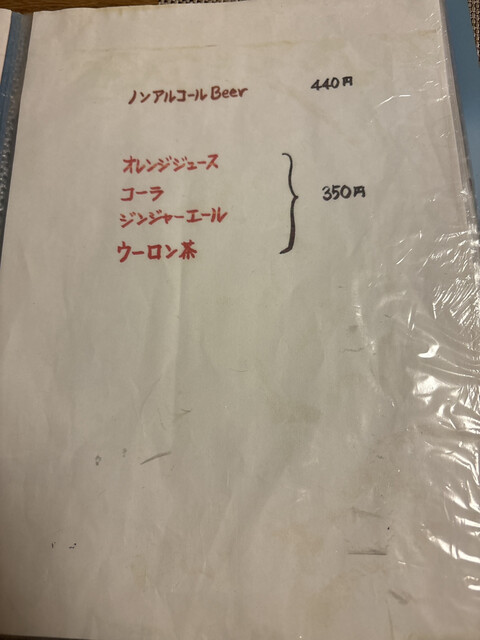 ノンアルコールBeer 440円
オレンジジュース
コーラ
ジンジャーエール
ウーロン茶
350円